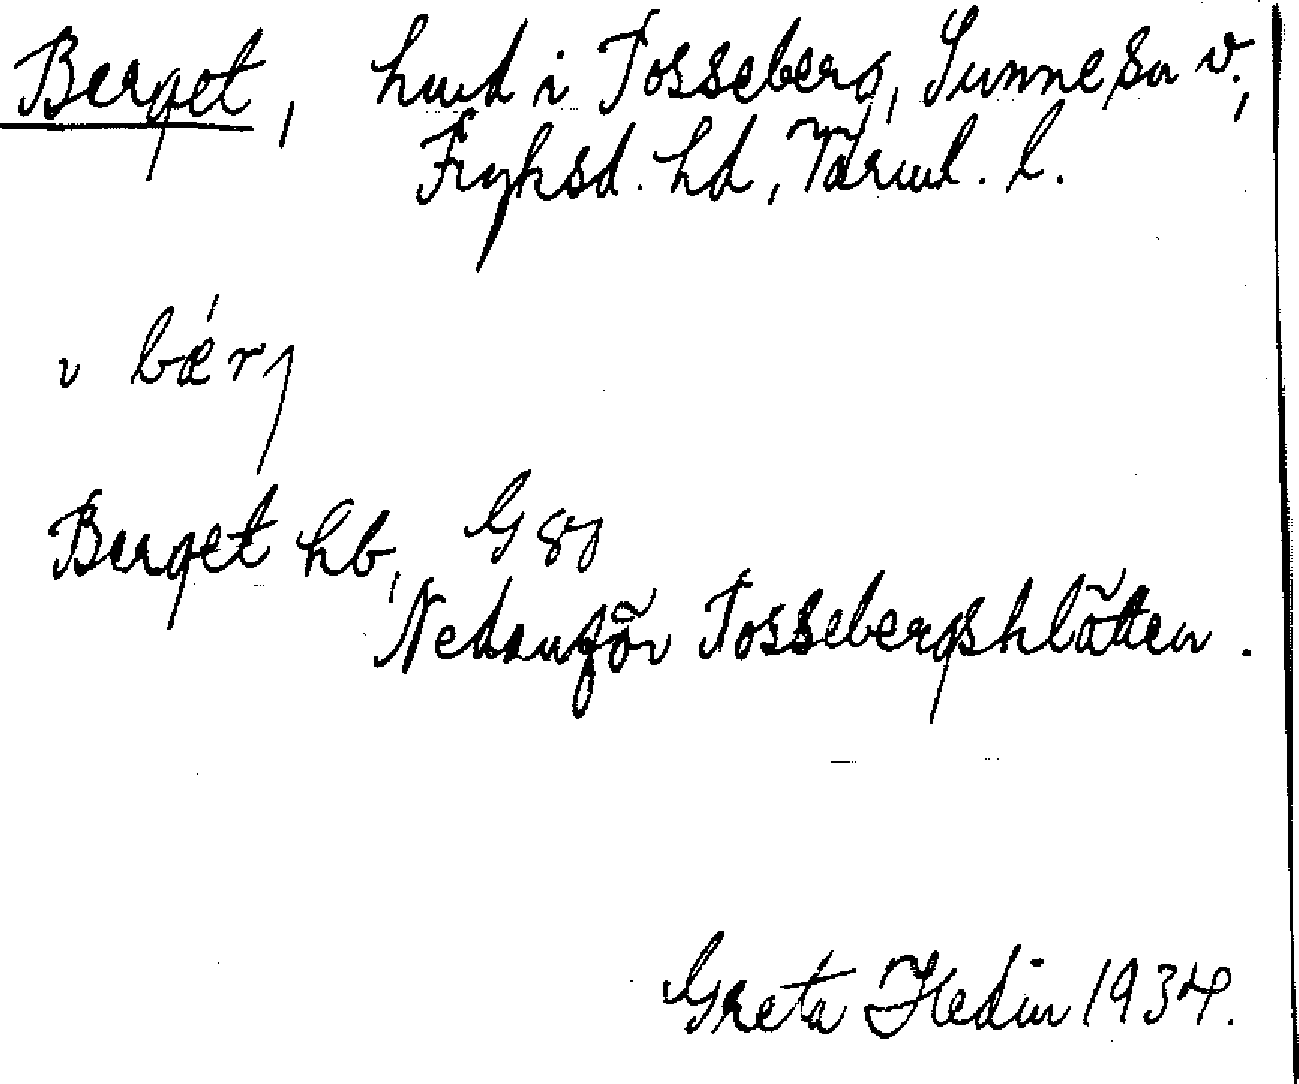 Berget, hmd i Tosseberg, Sunne sn v.,
Fryksd. hd, Värml. l.
bǽrj
Berget hb, G 89
Nedanför Tossebergsklätten.
Greta Hedin 1934.